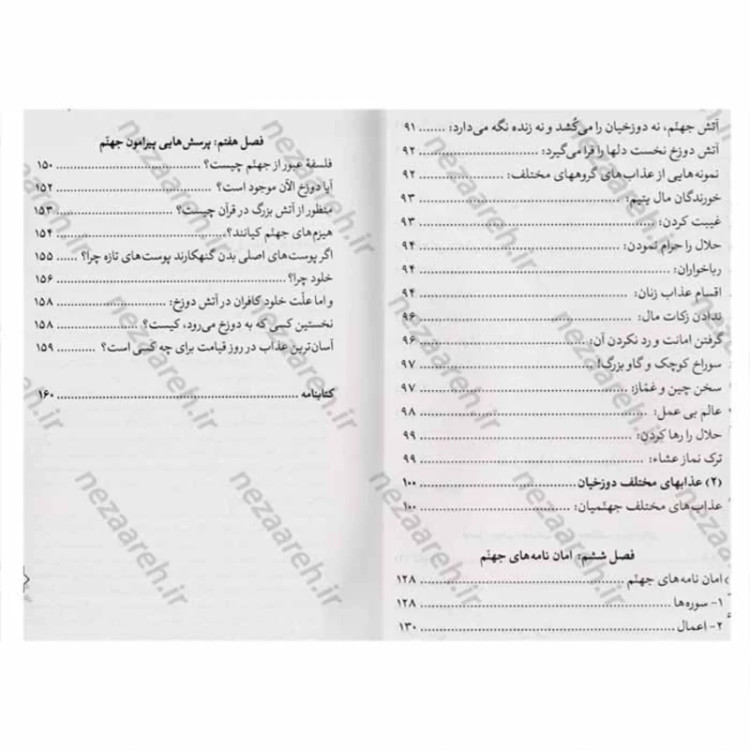 آتش جهنّم، نه دوزخیان را می‌کُشد و نه زنده نگه می‌دارد: ....... ۹۱
آتش دوزخ نخست دلها را فرا می‌گیرد: ....... ۹۲
نمونه‌هایی از عذاب‌های گروههای مختلف: ....... ۹۲
خورندگان مال یتیم: ....... ۹۳
غیبت کردن: ....... ۹۳
حلال را حرام نمودن: ....... ۹۴
رباخواران: ....... ۹۴
اقسام عذاب زنان: ....... ۹۴
ندادن زکات مال: ....... ۹۶
گرفتن امانت و رد نکردن آن: ....... ۹۶
سوراخ کوچک و گاو بزرگ! ....... ۹۷
سخن چین و غمّاز: ....... ۹۷
عالم بی عمل: ....... ۹۸
حلال را رها کردن: ....... ۹۹
ترک نماز عشاء: ....... ۹۹
(۲) عذابهای مختلف دوزخیان ....... ۱۰۰
عذاب‌های مختلف جهنّمیان: ....... ۱۰۰
فصل ششم: امان نامه‌های جهنّم
امان نامه‌های جهنّم ....... ۱۲۸
۱- سوره‌ها ....... ۱۲۸
۲- اعمال ....... ۱۳۰
فصل هفتم: پرسش‌هایی پیرامون جهنّم
فلسفهٔ عبور از جهنّم چیست؟ ....... ۱۵۰
آیا دوزخ الآن موجود است؟ ....... ۱۵۲
منظور از آتش بزرگ در قرآن چیست؟ ....... ۱۵۳
هیزم‌های جهنّم کیانند؟ ....... ۱۵۴
اگر پوست‌های اصلی بدن گنهکارند پوست‌های تازه چرا؟ ....... ۱۵۵
خلود چرا؟ ....... ۱۵۶
و اما علّت خلود کافران در آتش دوزخ: ....... ۱۵۸
نخستین کسی که به دوزخ می‌رود، کیست؟ ....... ۱۵۸
آسان‌ترین عذاب در روز قیامت برای چه کسی است؟ ....... ۱۵۹
کتابنامه ....... ۱۶۰
nezaareh.ir
nezaareh.ir
nezaareh.ir
nezaareh.ir
nezaareh.ir
nezaareh.ir
nezaareh.ir
nezaareh.ir
nezaareh.ir